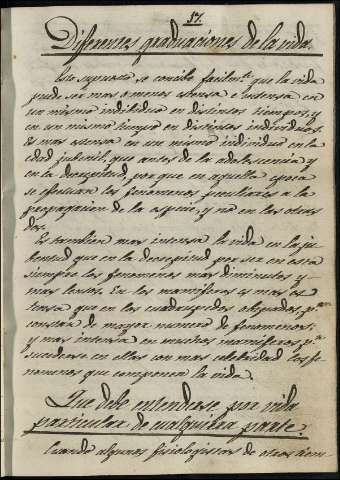 57.
Diferentes graduaciones de la vida.
Esto supuesto se concibe facilmte que la vida
puede ser mas o menos estensa e intensa en
un mismo individuo en distintos tiempos, y
en un mismo tiempo en distintos individuos.
Es mas estensa en un mismo individuo en la
edad jubenil, que antes de la adolescencia y
en la decrepitud, por que en aquella epoca
se efectuan los fenomenos peculiares a la
propagacion de la especie, y no en las otras
dos.
Es tambien mas intensa la vida en la ju-
bentud que en la decrepitud por ser en esta
siempre los fenomenos mas diminutos y
mas lentos. En los mamiferos es mas es-
tensa que en los cuadrupedos obiparos, pr
constar de mayor numero de fenomenos;
y mas intensa en muchos mamiferos pr
sucederse en ellos con mas celebridad los fe-
nomenos que componen la vida.
Que debe entenderse por vida
particular de cualquiera parte.
Cuando algunos fisiologistas de otros tiem-